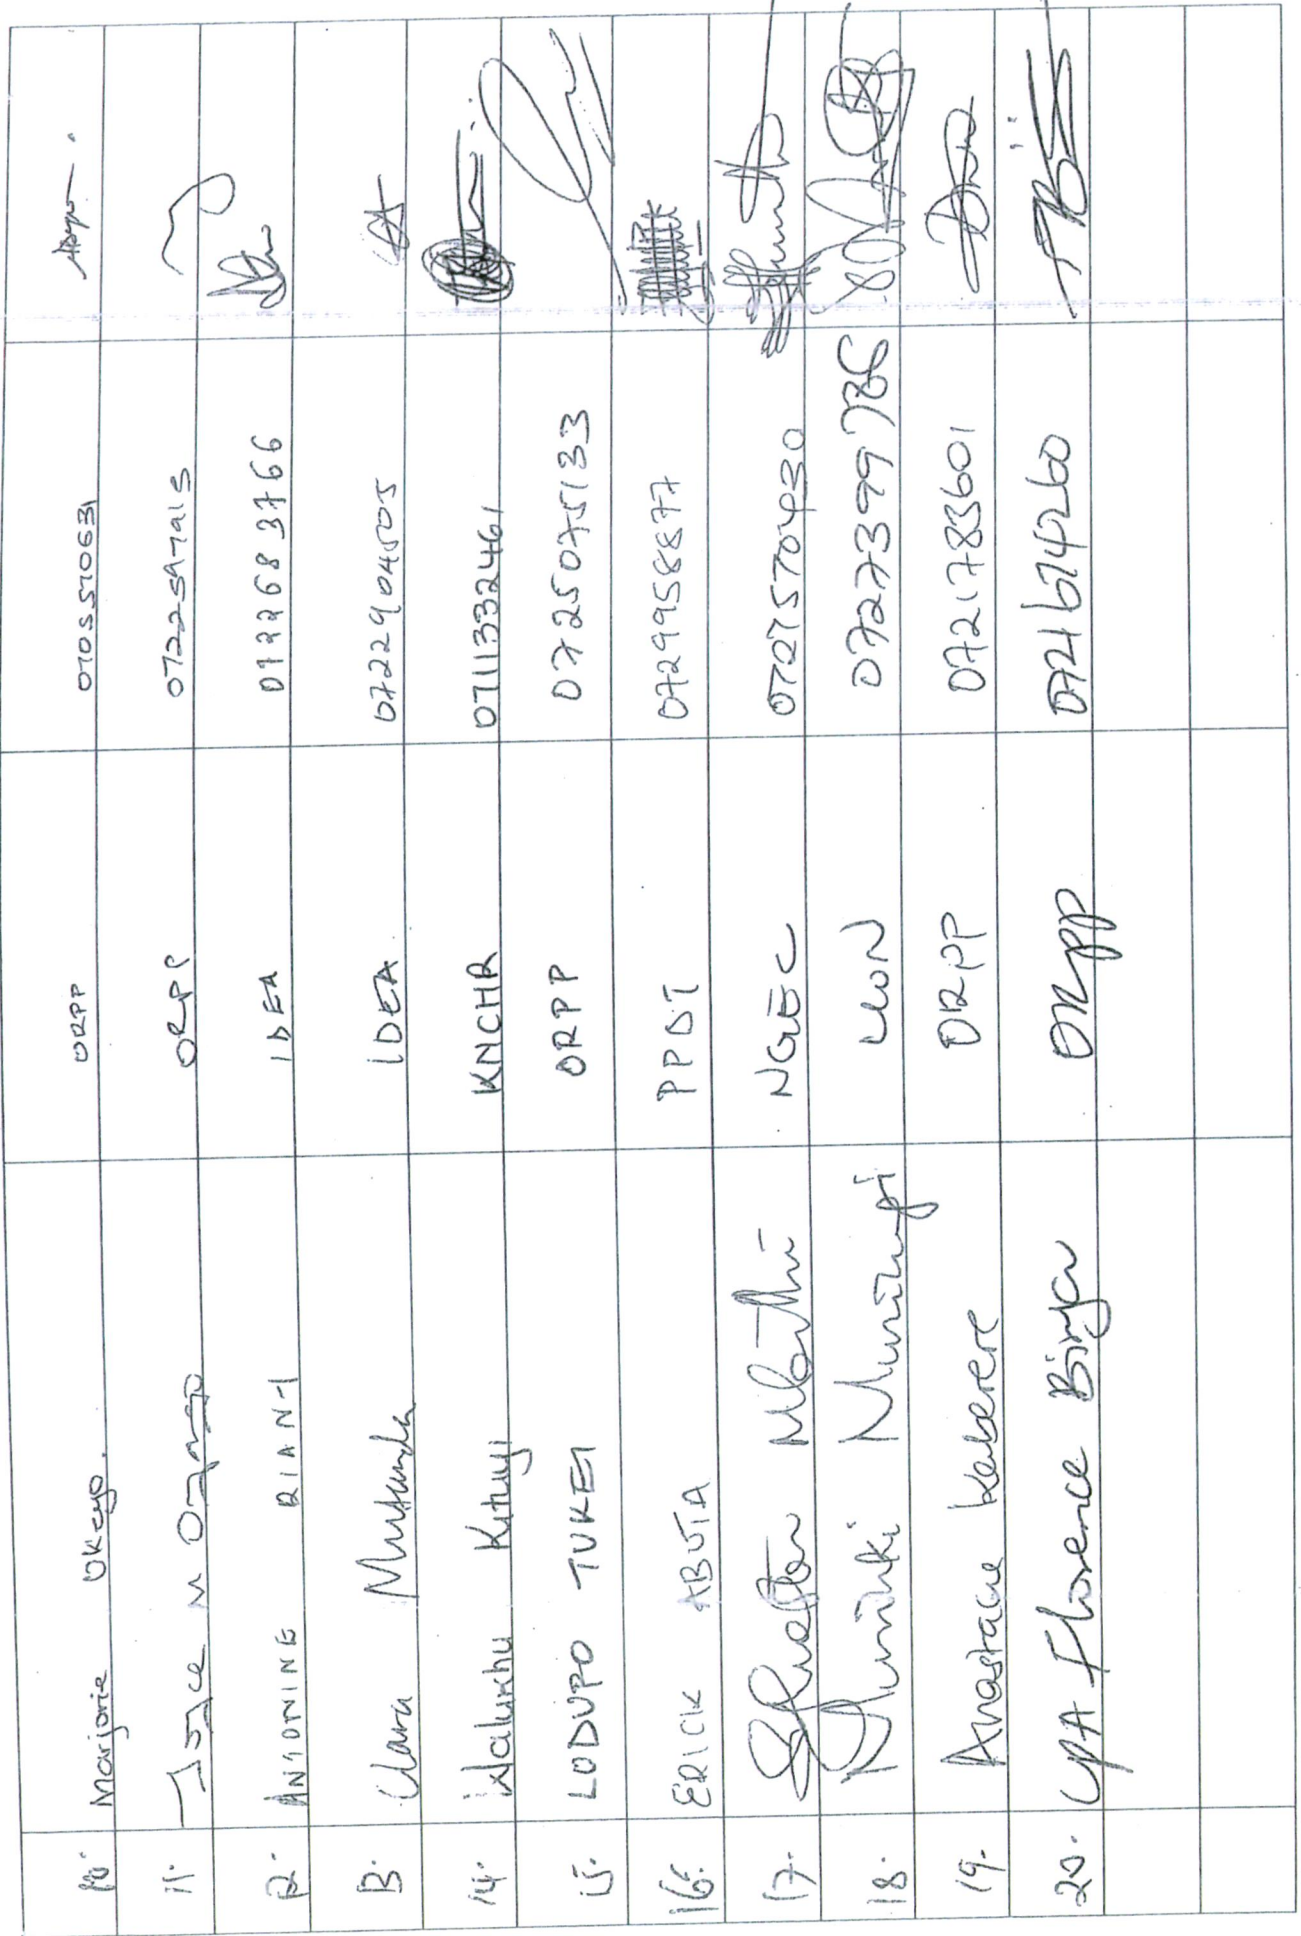 10. Marjorie Okeyo. ORPP 0705570631
11. Joyce M ORPP 0722597915
12. ANTONINE IDEA 0722683766
13. Clara Mutunda IDEA 0722904505
14. Walukhu Kituyi KNCHR 0711332461
15. LODUPO TUKEI ORPP 0725075133
16. ERICK ABUTA PPDT 0729958877
17. NGEC 0721570430
18. Muriuki Muriungi UON
19. Anastacia Kabere ORPP 0721783601
20. CPA Florence Birya ORPP 0721674260